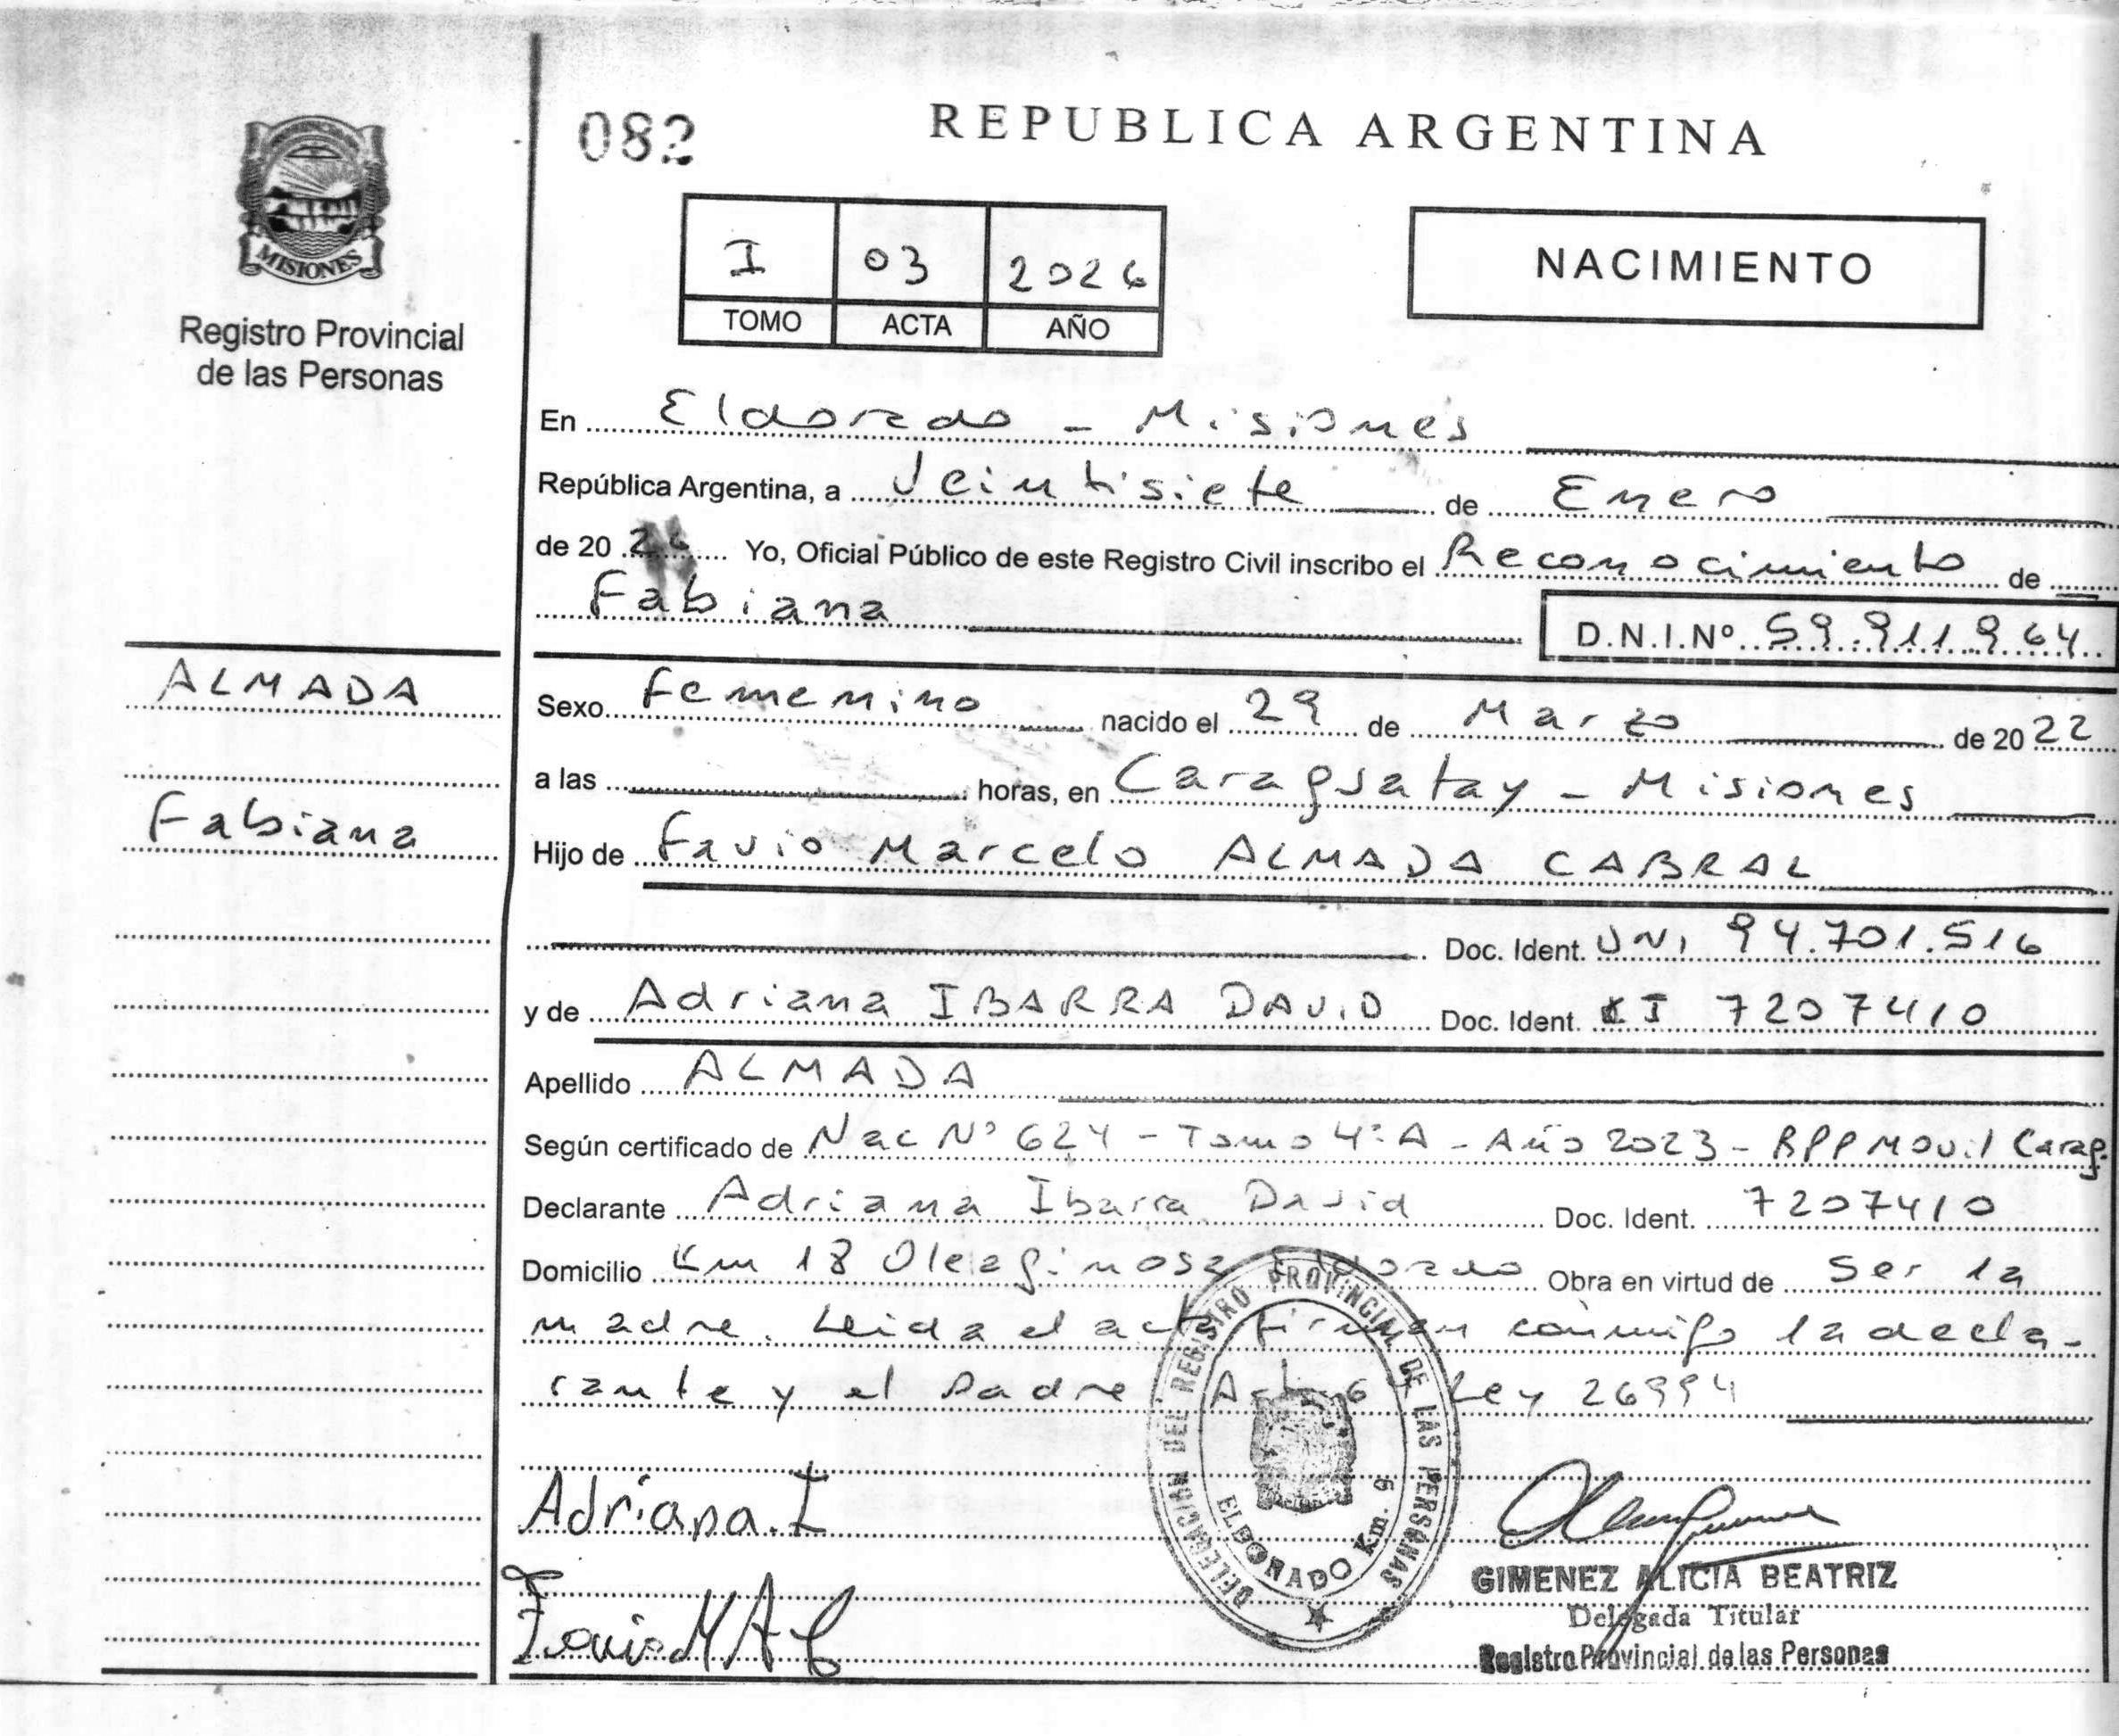 082
REPUBLICA ARGENTINA
MISIONES
Registro Provincial
de las Personas
I 03 2026
TOMO ACTA AÑO
NACIMIENTO
En Eldorado - Misiones
República Argentina, a Veintisiete de Enero
de 20 26 Yo, Oficial Público de este Registro Civil inscribo el Reconocimiento de
Fabiana D.N.I.Nº 59.911.964
ALMADA
Fabiana
Sexo Femenino nacido el 29 de Marzo de 2022
a las horas, en Caraguatay - Misiones
Hijo de Favio Marcelo ALMADA CABRAL
Doc. Ident. DNI 94.701.516
y de Adriana IBARRA DAVID Doc. Ident. CI 7207410
Apellido ALMADA
Según certificado de Nac Nº 624 - Tomo 4º A - Año 2023 - RPP Movil Carag.
Declarante Adriana Ibarra David Doc. Ident. 7207410
Domicilio Km 18 Oleaginosa Eldorado Obra en virtud de Ser la
madre. Leida el acta firman conmigo la decla-
rante y el Padre Ley 26994
DELEGACION DEL REGISTRO PROVINCIAL DE LAS PERSONAS
ELDORADO Km. 9
Adriana. I
Favio M A C
GIMENEZ ALICIA BEATRIZ
Delegada Titular
Registro Provincial de las Personas